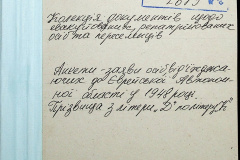 Колекція документів щодо
евакуйованих, репатрійованих
осіб та переселенців
Анкети - заяви осіб, від'їжджа-
ючих до Єврейської Автоном-
ної області у 1948 році.
Прізвища з літери „Д" по літеру „К"